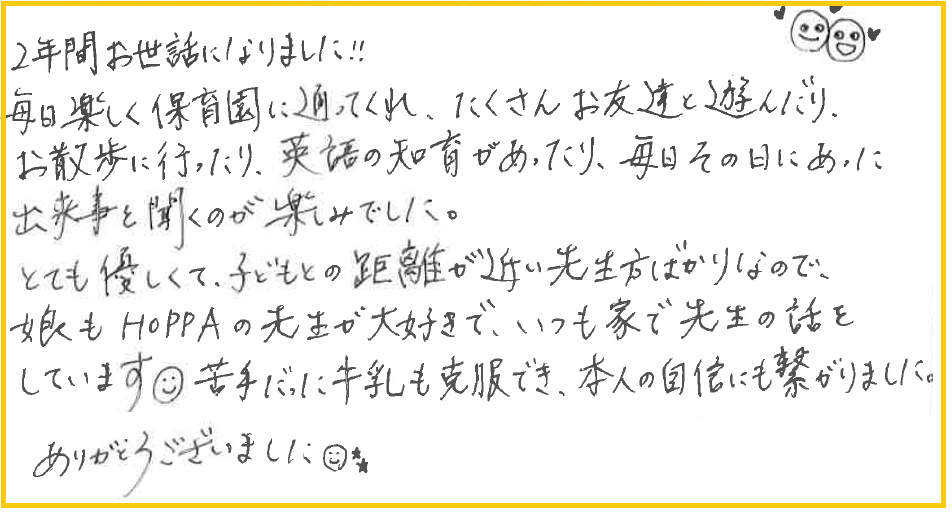 2年間お世話になりました!!
毎日楽しく保育園に通ってくれ、たくさんお友達と遊んだり、
お散歩に行ったり、英語の知育があったり、毎日その日にあった
出来事を聞くのが楽しみでした。
とても優しくて、子どもとの距離が近い先生方ばかりなので、
娘もHOPPAの先生が大好きで、いつも家で先生の話を
しています 苦手だった牛乳も克服でき、本人の自信にも繋がりました。
ありがとうございました